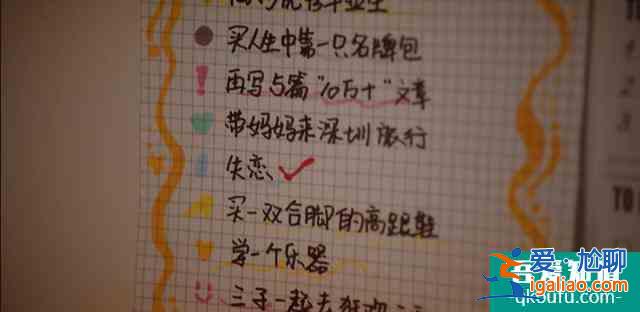 买人生中第一只名牌包
再写5篇"10万+"文章
带妈妈来深圳旅行
失恋
买一双合脚的高跟鞋
学一个乐器
三子一起去
TO
TO
爱·尬聊
igaliao.com
qkoufu.com